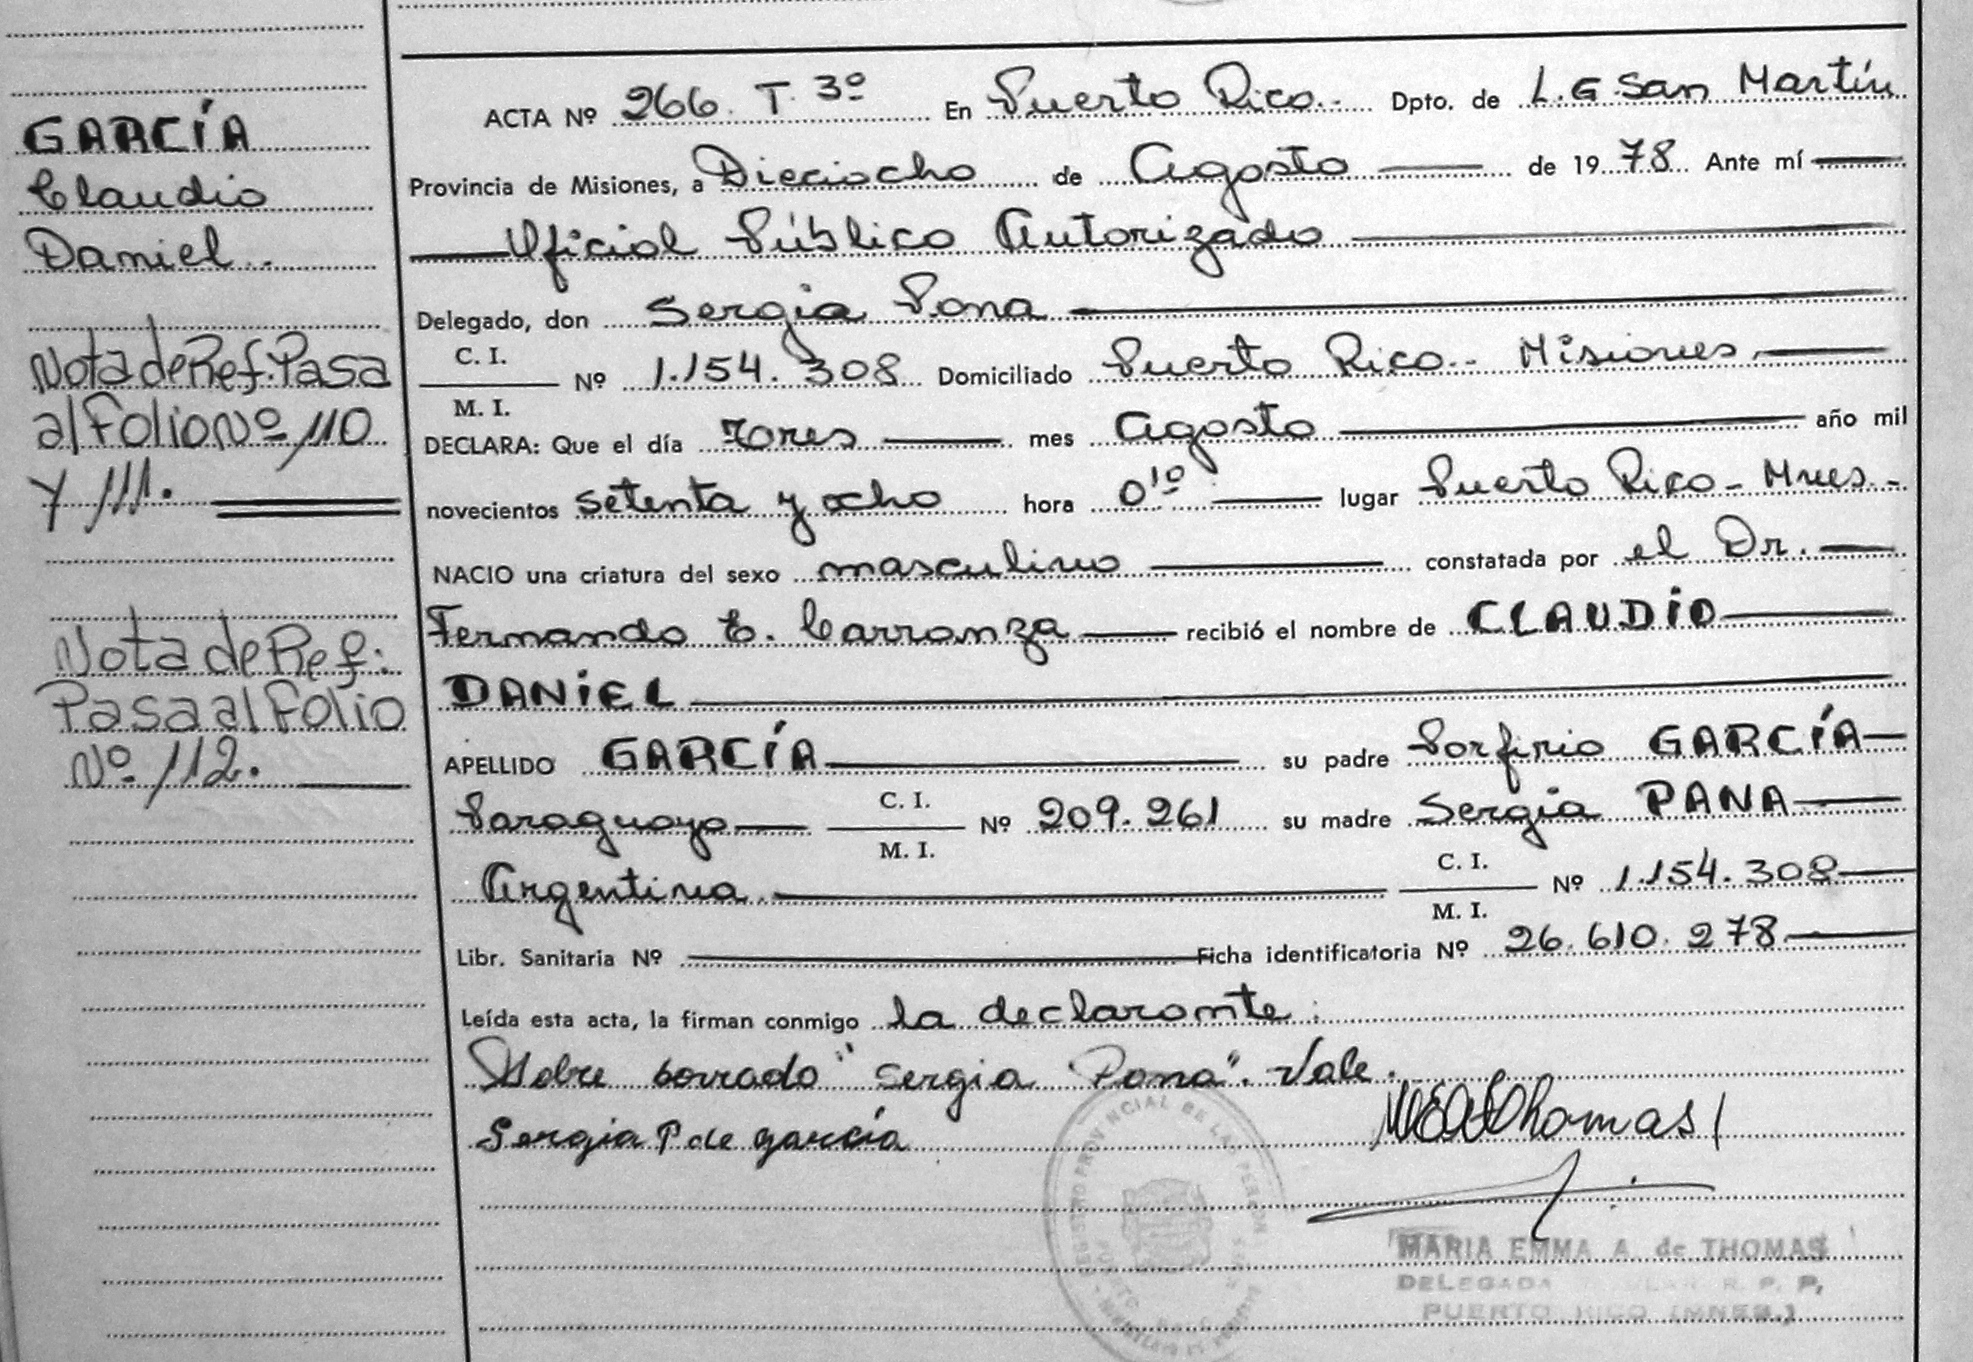 GARCÍA
Claudio
Daniel.
Nota de Ref: Pasa
al Folio Nº 110
Y 111.
Nota de Ref:
Pasa al Folio
Nº 112.
ACTA Nº 266. T. 3º En Puerto Rico.- Dpto. de L.G. San Martín
Provincia de Misiones, a Dieciocho de Agosto de 19 78 Ante mí
Oficial Público Autorizado
Delegado, don Sergia Pana
C. I.
Nº 1.154.308 Domiciliado Puerto Rico.- Misiones
M. I.
DECLARA: Que el día Tres mes Agosto año mil
novecientos setenta y ocho hora 0¹⁰ lugar Puerto Rico - Mnes -
NACIO una criatura del sexo masculino constatada por el Dr.
Fernando E. Carranza recibió el nombre de CLAUDIO
DANIEL
APELLIDO GARCÍA su padre Porfirio GARCÍA
Paraguayo C. I. M. I. Nº 209.261 su madre Sergia PANA
Argentina C. I. M. I. Nº 1.154.308
Libr. Sanitaria Nº Ficha identificatoria Nº 26.610.278
Leída esta acta, la firman conmigo la declarante.
Sobre borrado "Sergia Pana". Vale.
Sergia P de García
MEAdThomas
MARIA EMMA A. de THOMAS
DELEGADA R. P. P.
PUERTO RICO (MNES.)